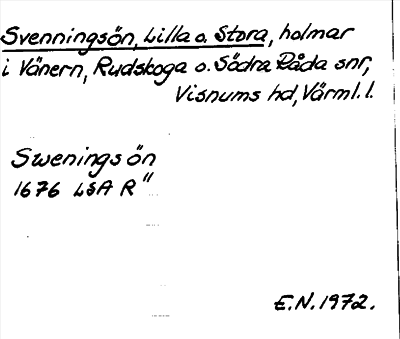 Svenningsön, Lilla o. Stora, holmar
i Vänern, Rudskoga o. Södra Råda snr,
Visnums hd, Värml. l.
Swenings ön
1676 LSA R"
E.N. 1972.